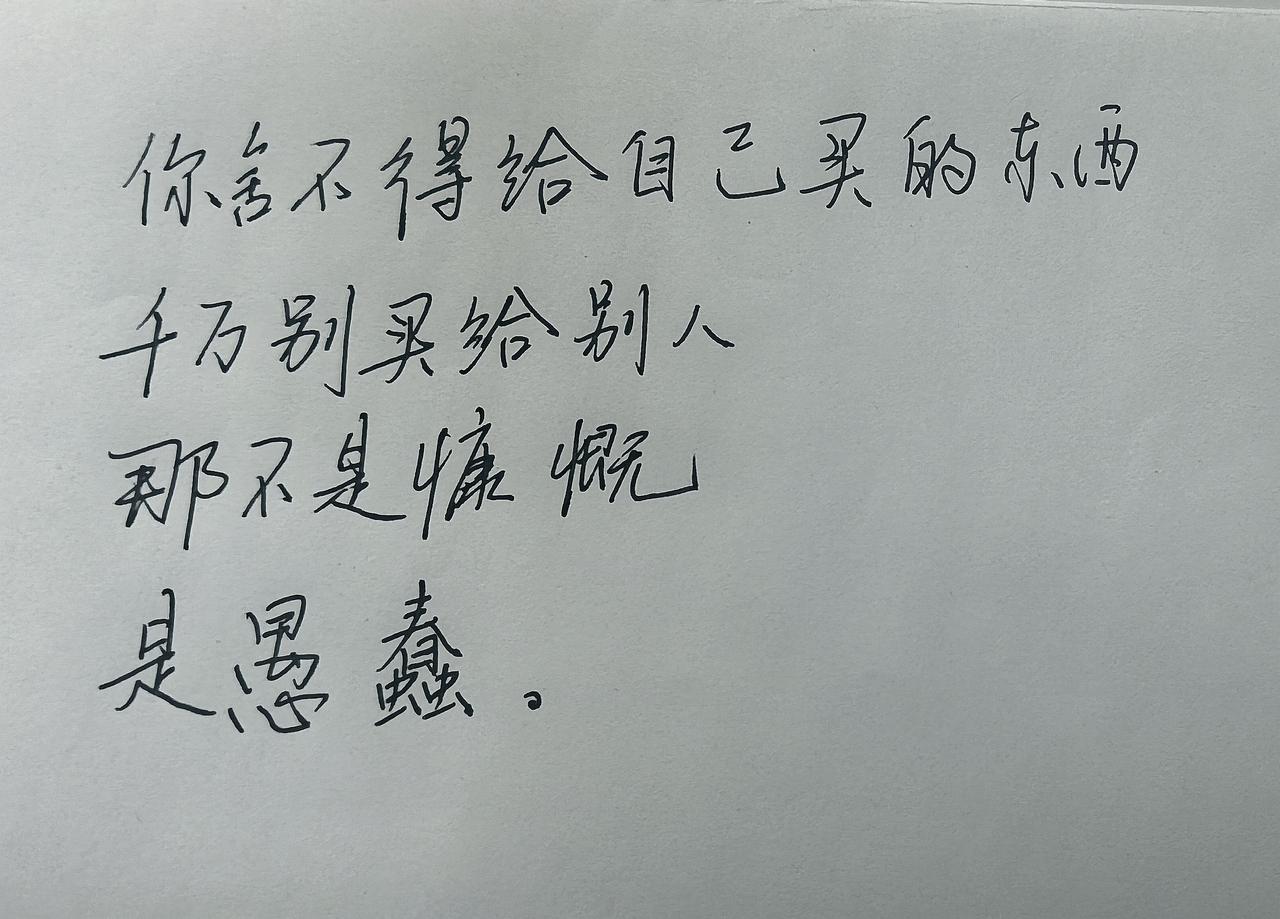 你舍不得给自己买的东西
千万别买给别人
那不是慷慨
是愚蠢。